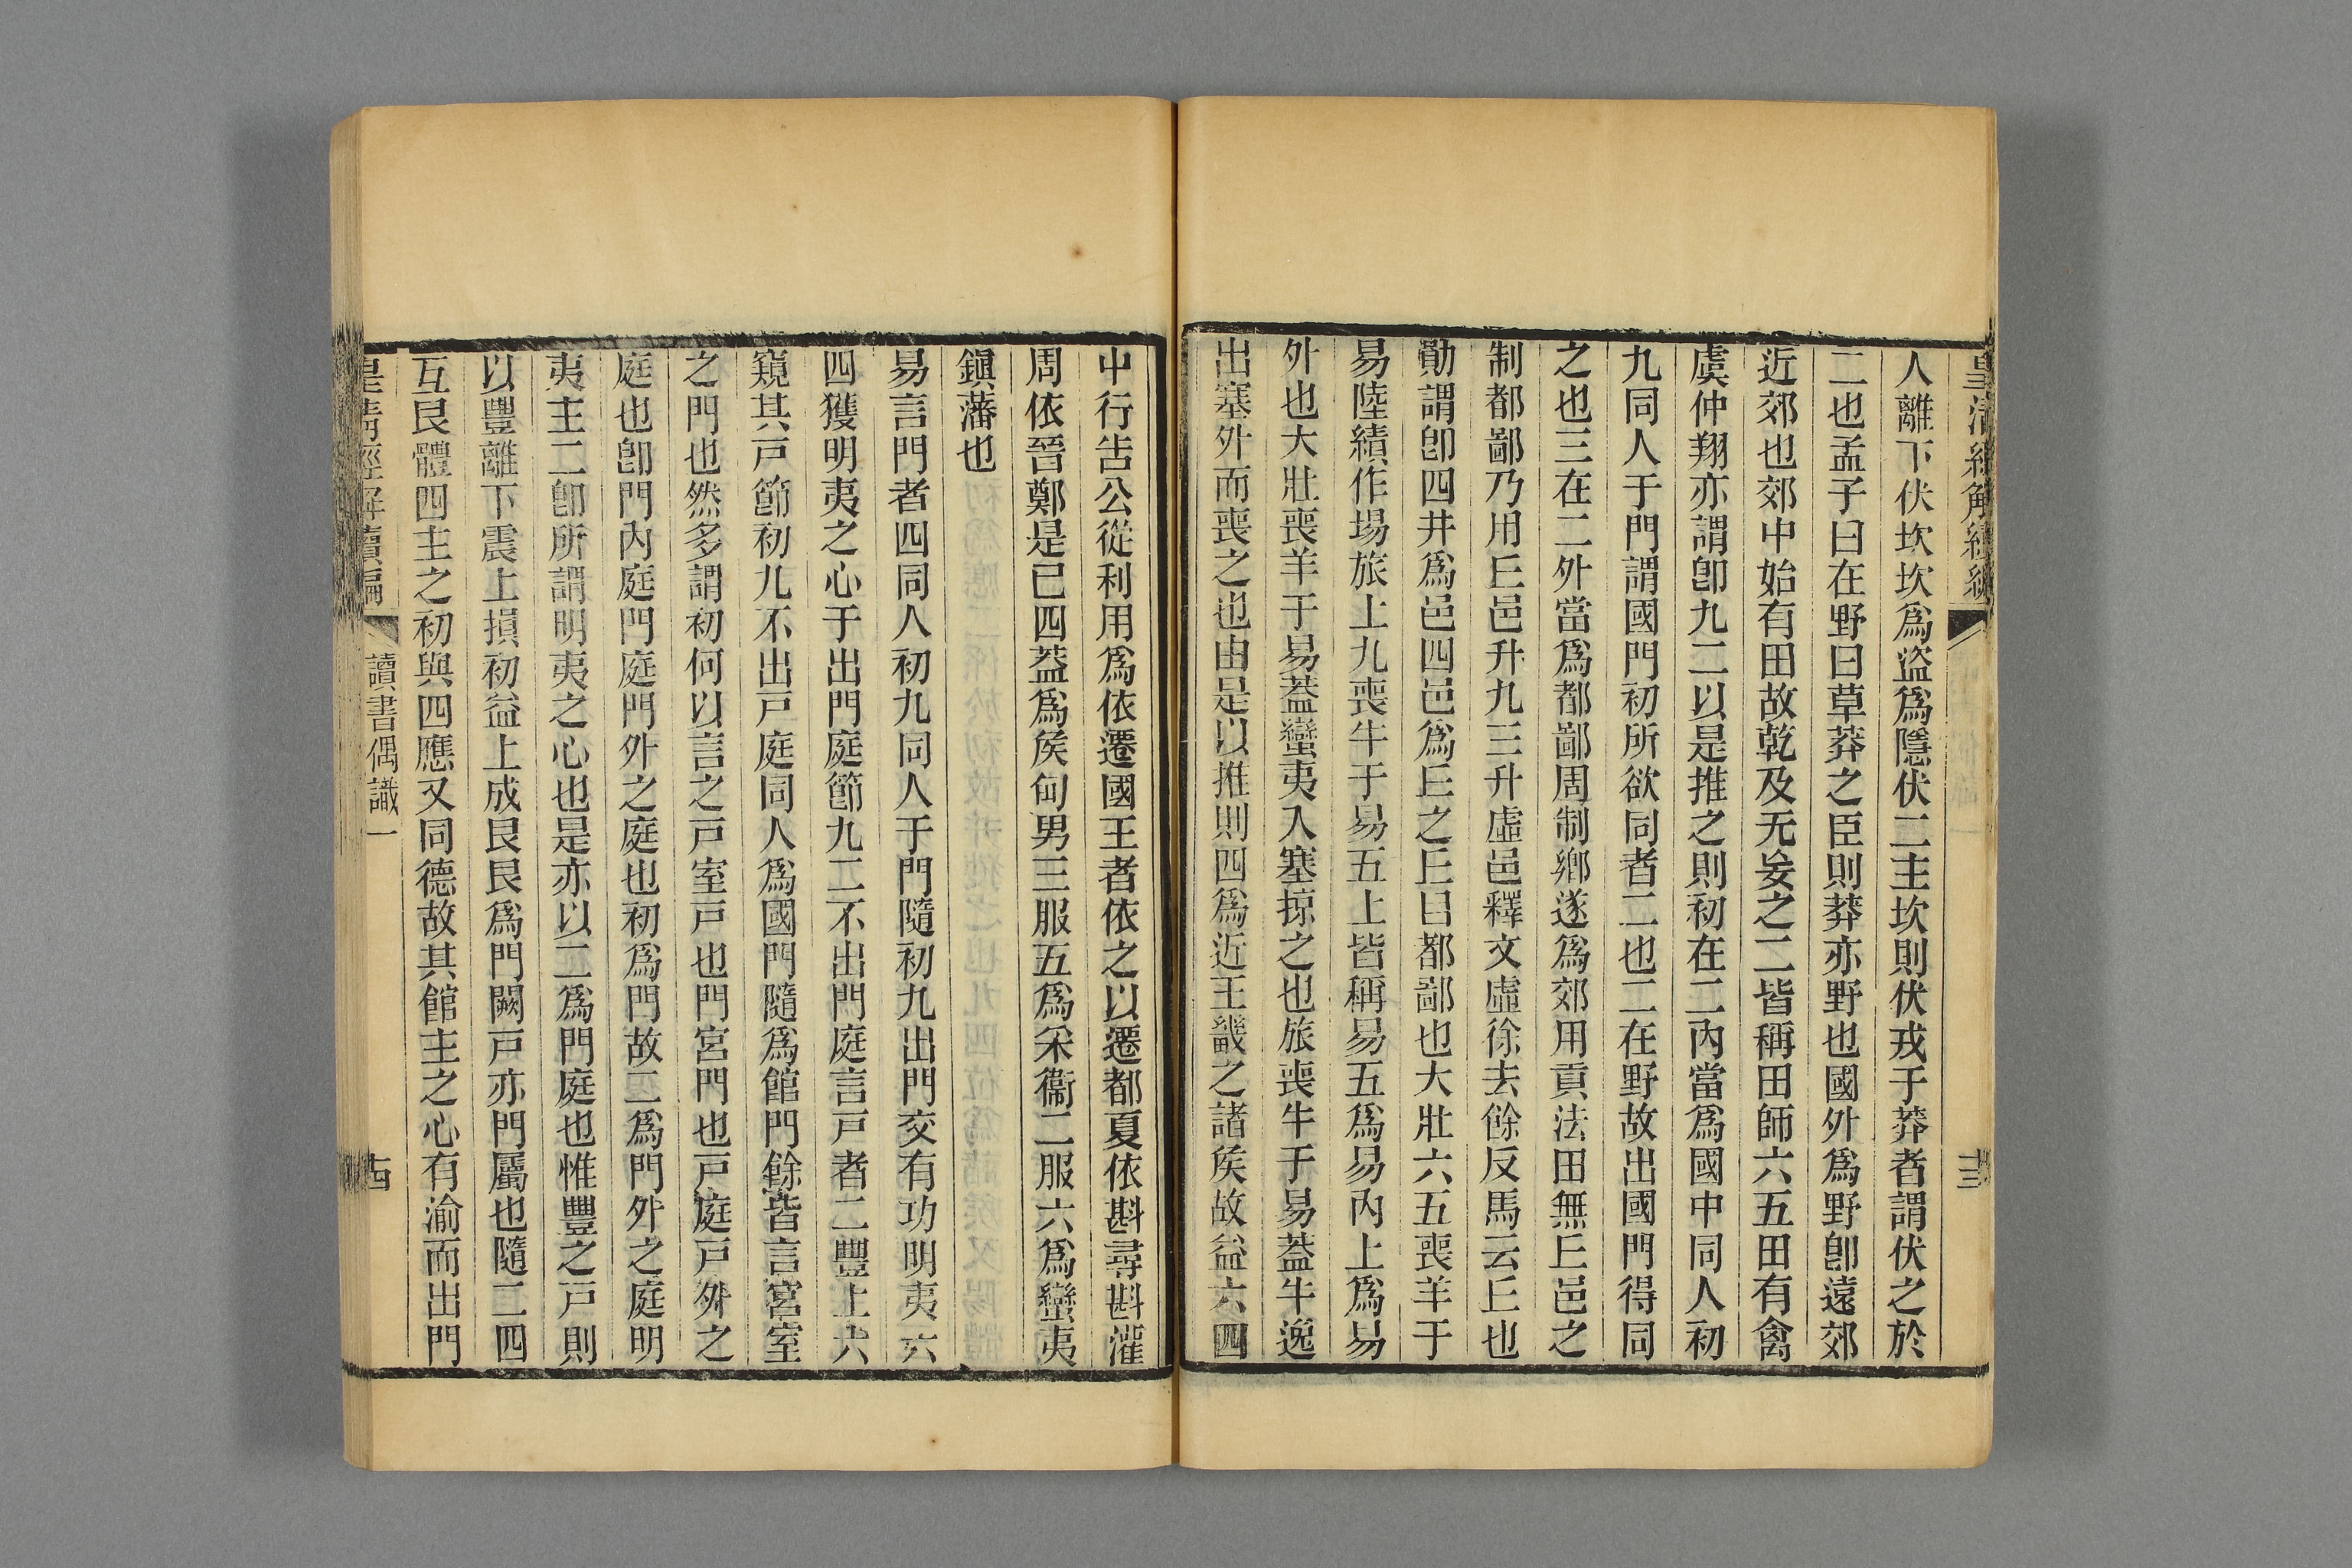 皇清經解續編
十三
人離下伏坎坎爲盜爲隱伏二主坎則伏戎于莽者謂伏之於
二也孟子曰在野曰草莽之臣則莽亦野也國外爲野卽遠郊
近郊也郊中始有田故乾及无妄之二皆稱田師六五田有禽
虞仲翔亦謂卽九二以是推之則初在二內當爲國中同人初
九同人于門謂國門初所欲同者二也二在野故出國門得同
之也三在二外當爲都鄙周制鄉遂爲郊用貢法田無𠀉邑之
制都鄙乃用𠀉邑升九三升虛邑釋文虛徐去餘反馬云𠀉也
勛謂卽四井爲邑四邑爲𠀉之𠀉曰都鄙也大壯六五喪羊于
易陸績作場旅上九喪牛于易五上皆稱易五爲易內上爲易
外也大壯喪羊于易葢蠻夷入塞掠之也旅喪牛于易葢牛逸
出塞外而喪之也由是以推則四爲近王畿之諸矦故益六四
中行告公從利用爲依遷國王者依之以遷都夏依斟尋斟灌
周依晉鄭是已四葢爲矦甸男三服五爲采衞二服六爲蠻夷
鎭藩也
易言門者四同人初九同人于門隨初九出門交有功明夷六
四獲明夷之心于出門庭節九二不出門庭言戸者二豐上六
窺其戸節初九不出戸庭同人爲國門隨爲館門餘皆言宮室
之門也然多謂初何以言之戸室戸也門宮門也戸庭戸外之
庭也卽門內庭門庭門外之庭也初爲門故二爲門外之庭明
夷主二卽所謂明夷之心也是亦以二爲門庭也惟豐之戸則
以豐離下震上損初益上成艮艮爲門闕戸亦門屬也隨二四
互艮體四主之初與四應又同德故其館主之心有渝而出門
皇清經解續編
讀書偶識一
十四